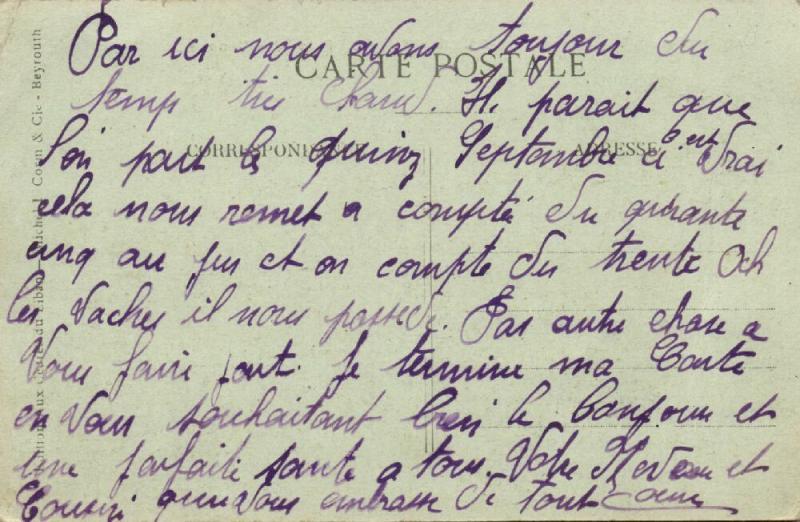 Par ici nous avons toujour du
CARTE POSTALE
temp très chaud. Il parait que
l'on part le quinz Septembre si c'est vrai
CORRESPONDANCE
ADRESSE
cela nous remet a compté du quarante
cinq au jus et on compte du trente Och
les vaches il nous possede. Pas autre chose a
vous faire part. Je termine ma Carte
en vous souhaitant bien le bonjour et
une parfaite santé a tous. Votre Neveu et
Cousin qui vous embrasse de tout coeur
du Liban
Corm & Cie - Beyrouth